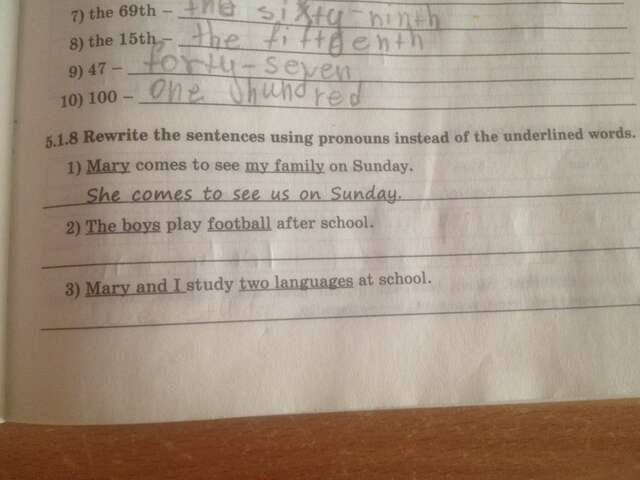 7) the 69th – the sixty-ninth
8) the 15th – the fifteenth
9) 47 – forty-seven
10) 100 – one hundred
5.1.8 Rewrite the sentences using pronouns instead of the underlined words.
1) Mary comes to see my family on Sunday.
She comes to see us on Sunday.
2) The boys play football after school.
3) Mary and I study two languages at school.